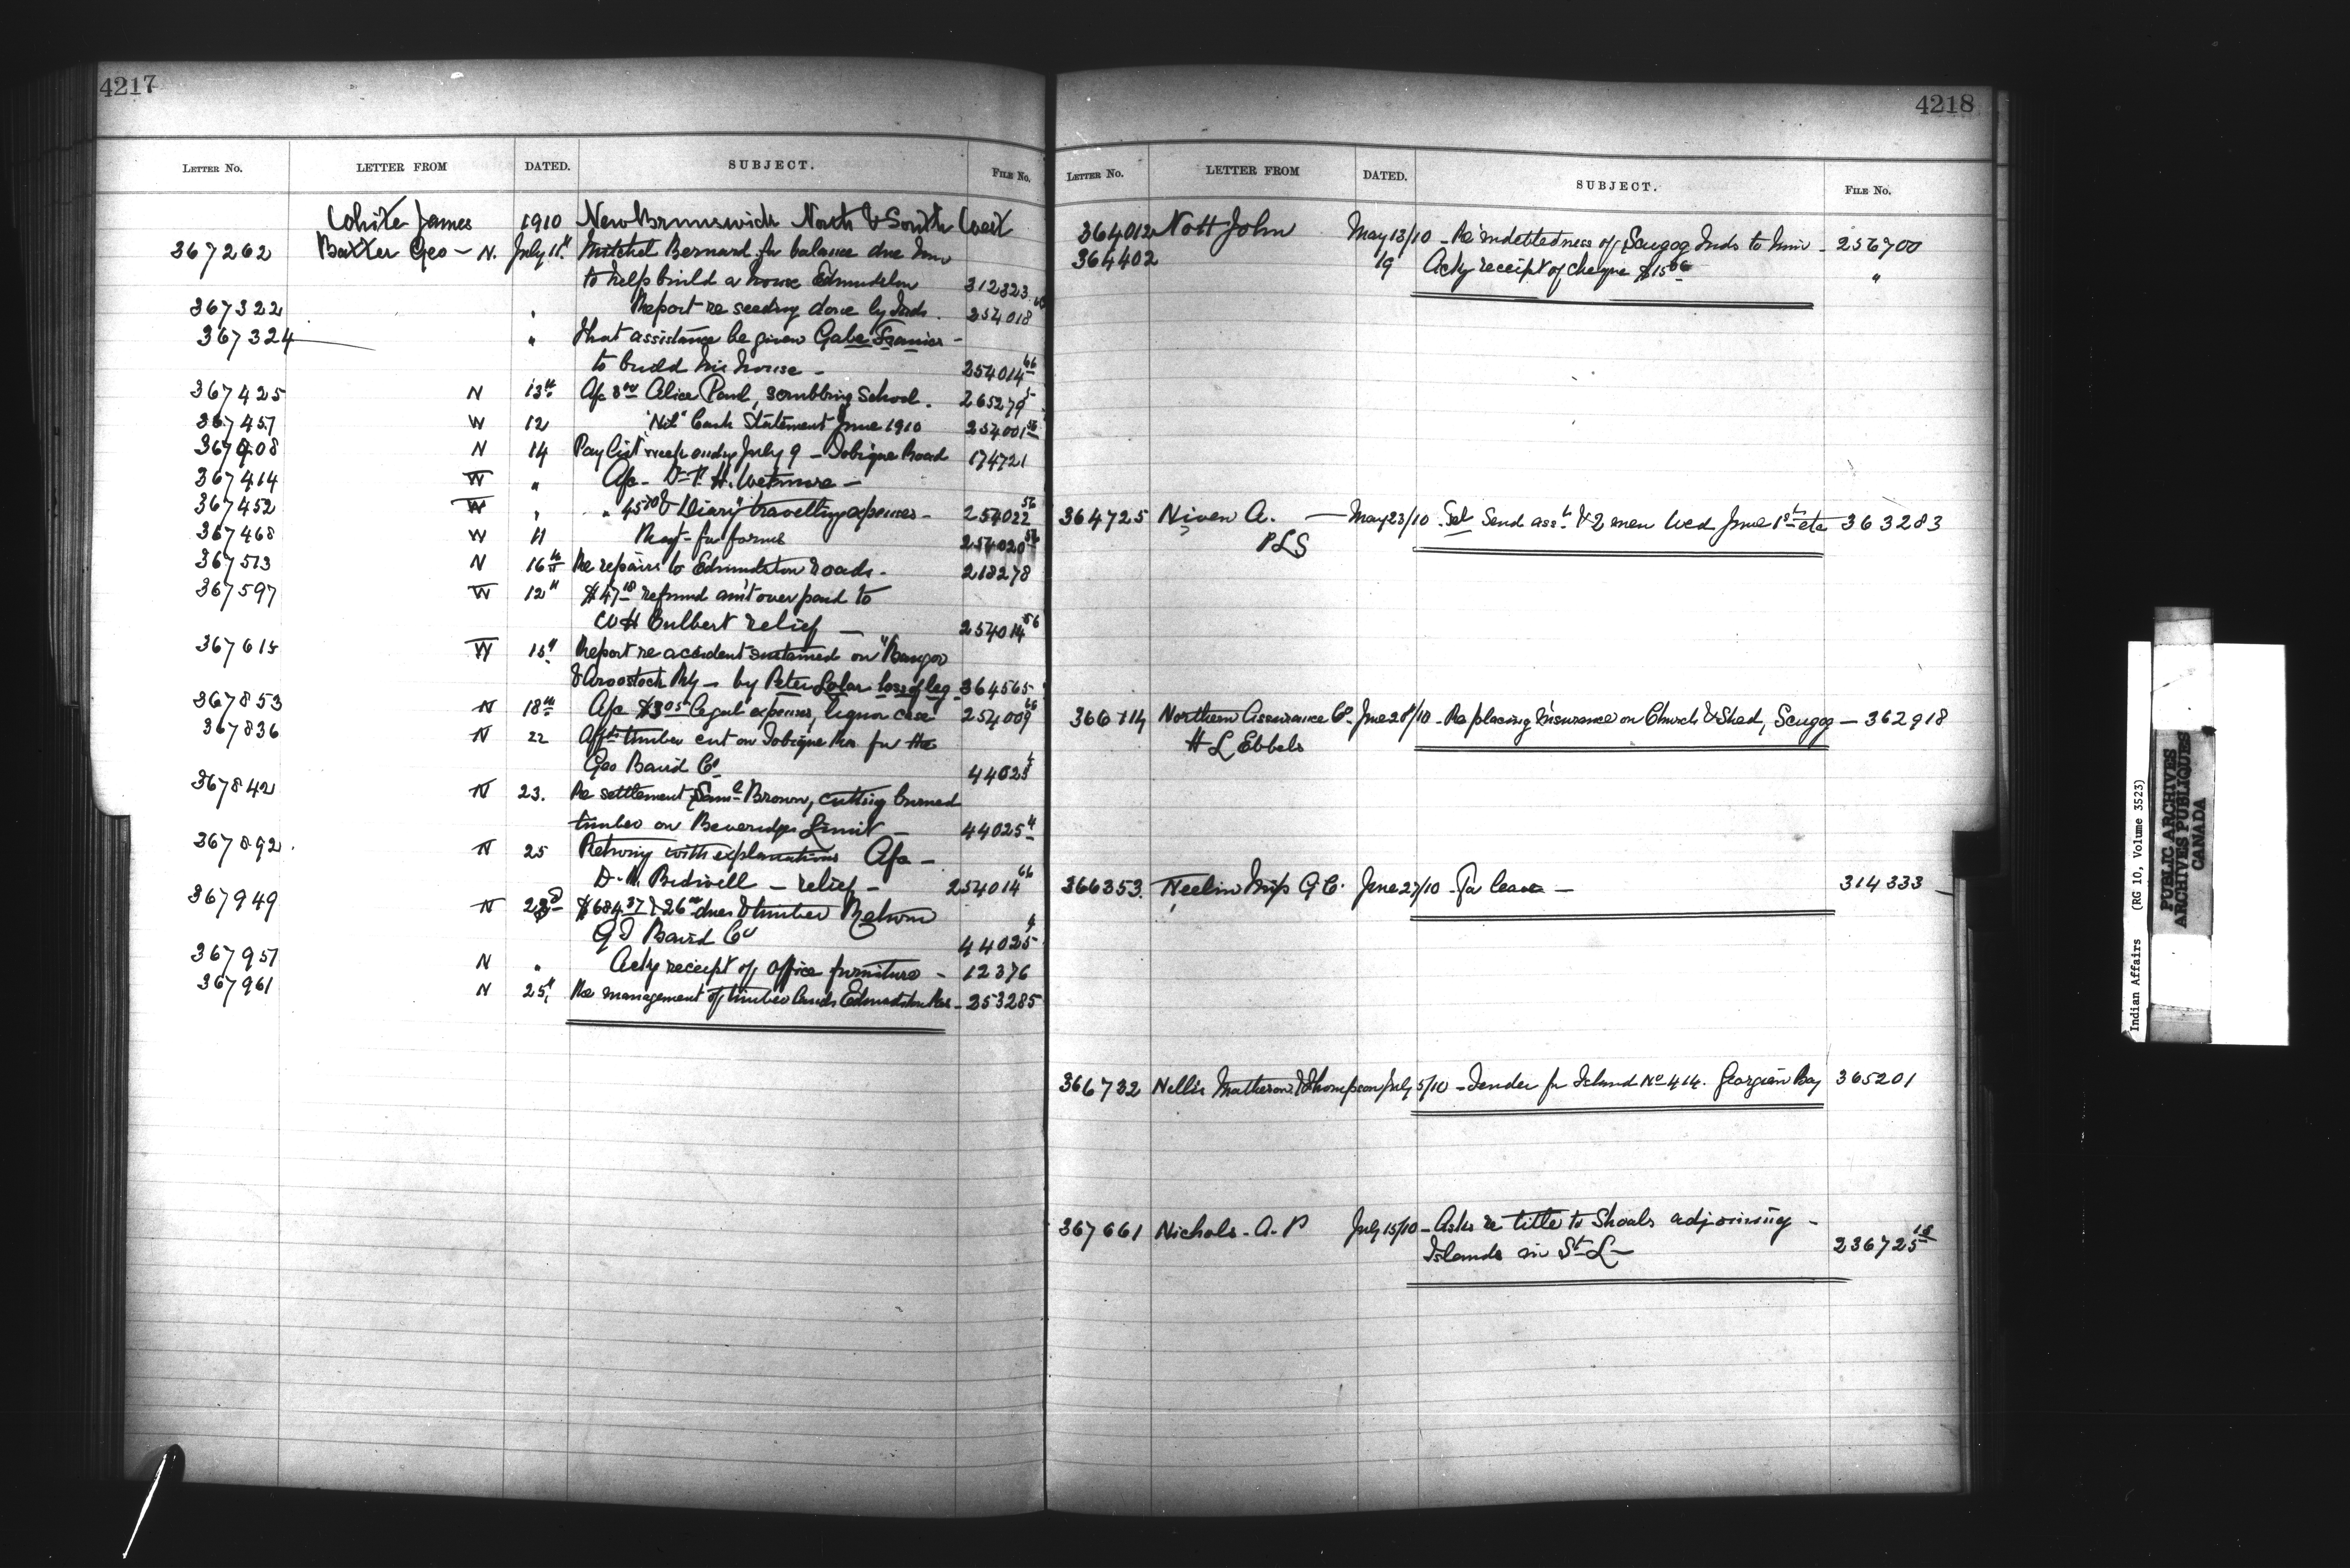 4217
LETTER NO. LETTER FROM DATED. SUBJECT. FILE NO.
White James 1910 New Brunswick North & South West
367262 Baxter Geo - N. July 11th Mitchel Bernard for balance due him
to help build a house Edmundston 312323
367322 " Report re seeding done by Inds. 254018
367324 " that assistance be given Gabe -
to build his house - 254014 66
367425 N 13th A/c 3 00 Alice Paul, scrubbing School. 265279 5
367457 W 12 "Nil" Cash Statement June 1910 254001 56
367408 N 14 Pay list week ending July 9 - Tobique Road 174721
367414 W " A/c - Dr. H. Wetmore -
367452 W " " 45 & Diary travelling expenses - 254022 56
367468 W 11 Reqt - for forms 254020 56
367513 N 16th Re repairs to Edmundston roads. 218278
367597 W 12th $47 18 refund am't over paid to
W H Culbert relief - 254014 56
367615 W 15th Report re accident sustained on "Bangor
& Aroostook Rly - by Peter Lolar loss of leg - 364565
367853 N 18th A/c $3 05 legal expenses, liquor case 254009 66
367836 N 22 Affts timber cut on Tobique Res. for the
Geo Baird Co 44025 4
367842 N 23. Re settlement Saml Brown, cutting burned
timber on Beveridge Limit - 44025 4
367892. N 25 Retwing with explanations A/c -
D. Bedwell - relief - 254014 66
367949 N 23d $684 37 & 26 00 dues & timber Return
G T Baird Co 44025 4
367957 N " Ackg receipt of office furniture - 12376
367961 N 25th Re management of timber lands Edmundston Res - 253285
4218
LETTER NO. LETTER FROM DATED. SUBJECT. FILE NO.
364012 Nott John May 13/10 - Re indebtedness of Scugog Inds to him - 256700
364402 19 Ackg receipt of cheque $15 06 "
364725 Niven A. - May 23/10 - Send asst & 2 men Wed June 1st etc 363283
PLS
366114 Northern Assurance Co. June 28/10 - Re placing insurance on Church & Shed, Scugog - 362918
H L Ebbels
366353. Neelin Miss G C. June 27/10 - For leave - 314333 -
366732 Nellis Matheson & Thompson July 5/10 - Tender for Island No 414. Georgian Bay 365201
367661 Nichols. A. P July 15/10 - Asks re title to Shoals adjoining -
Islands in St L - 236725 18
Indian Affairs (RG 10, Volume 3523)
PUBLIC ARCHIVES
ARCHIVES PUBLIQUES
CANADA